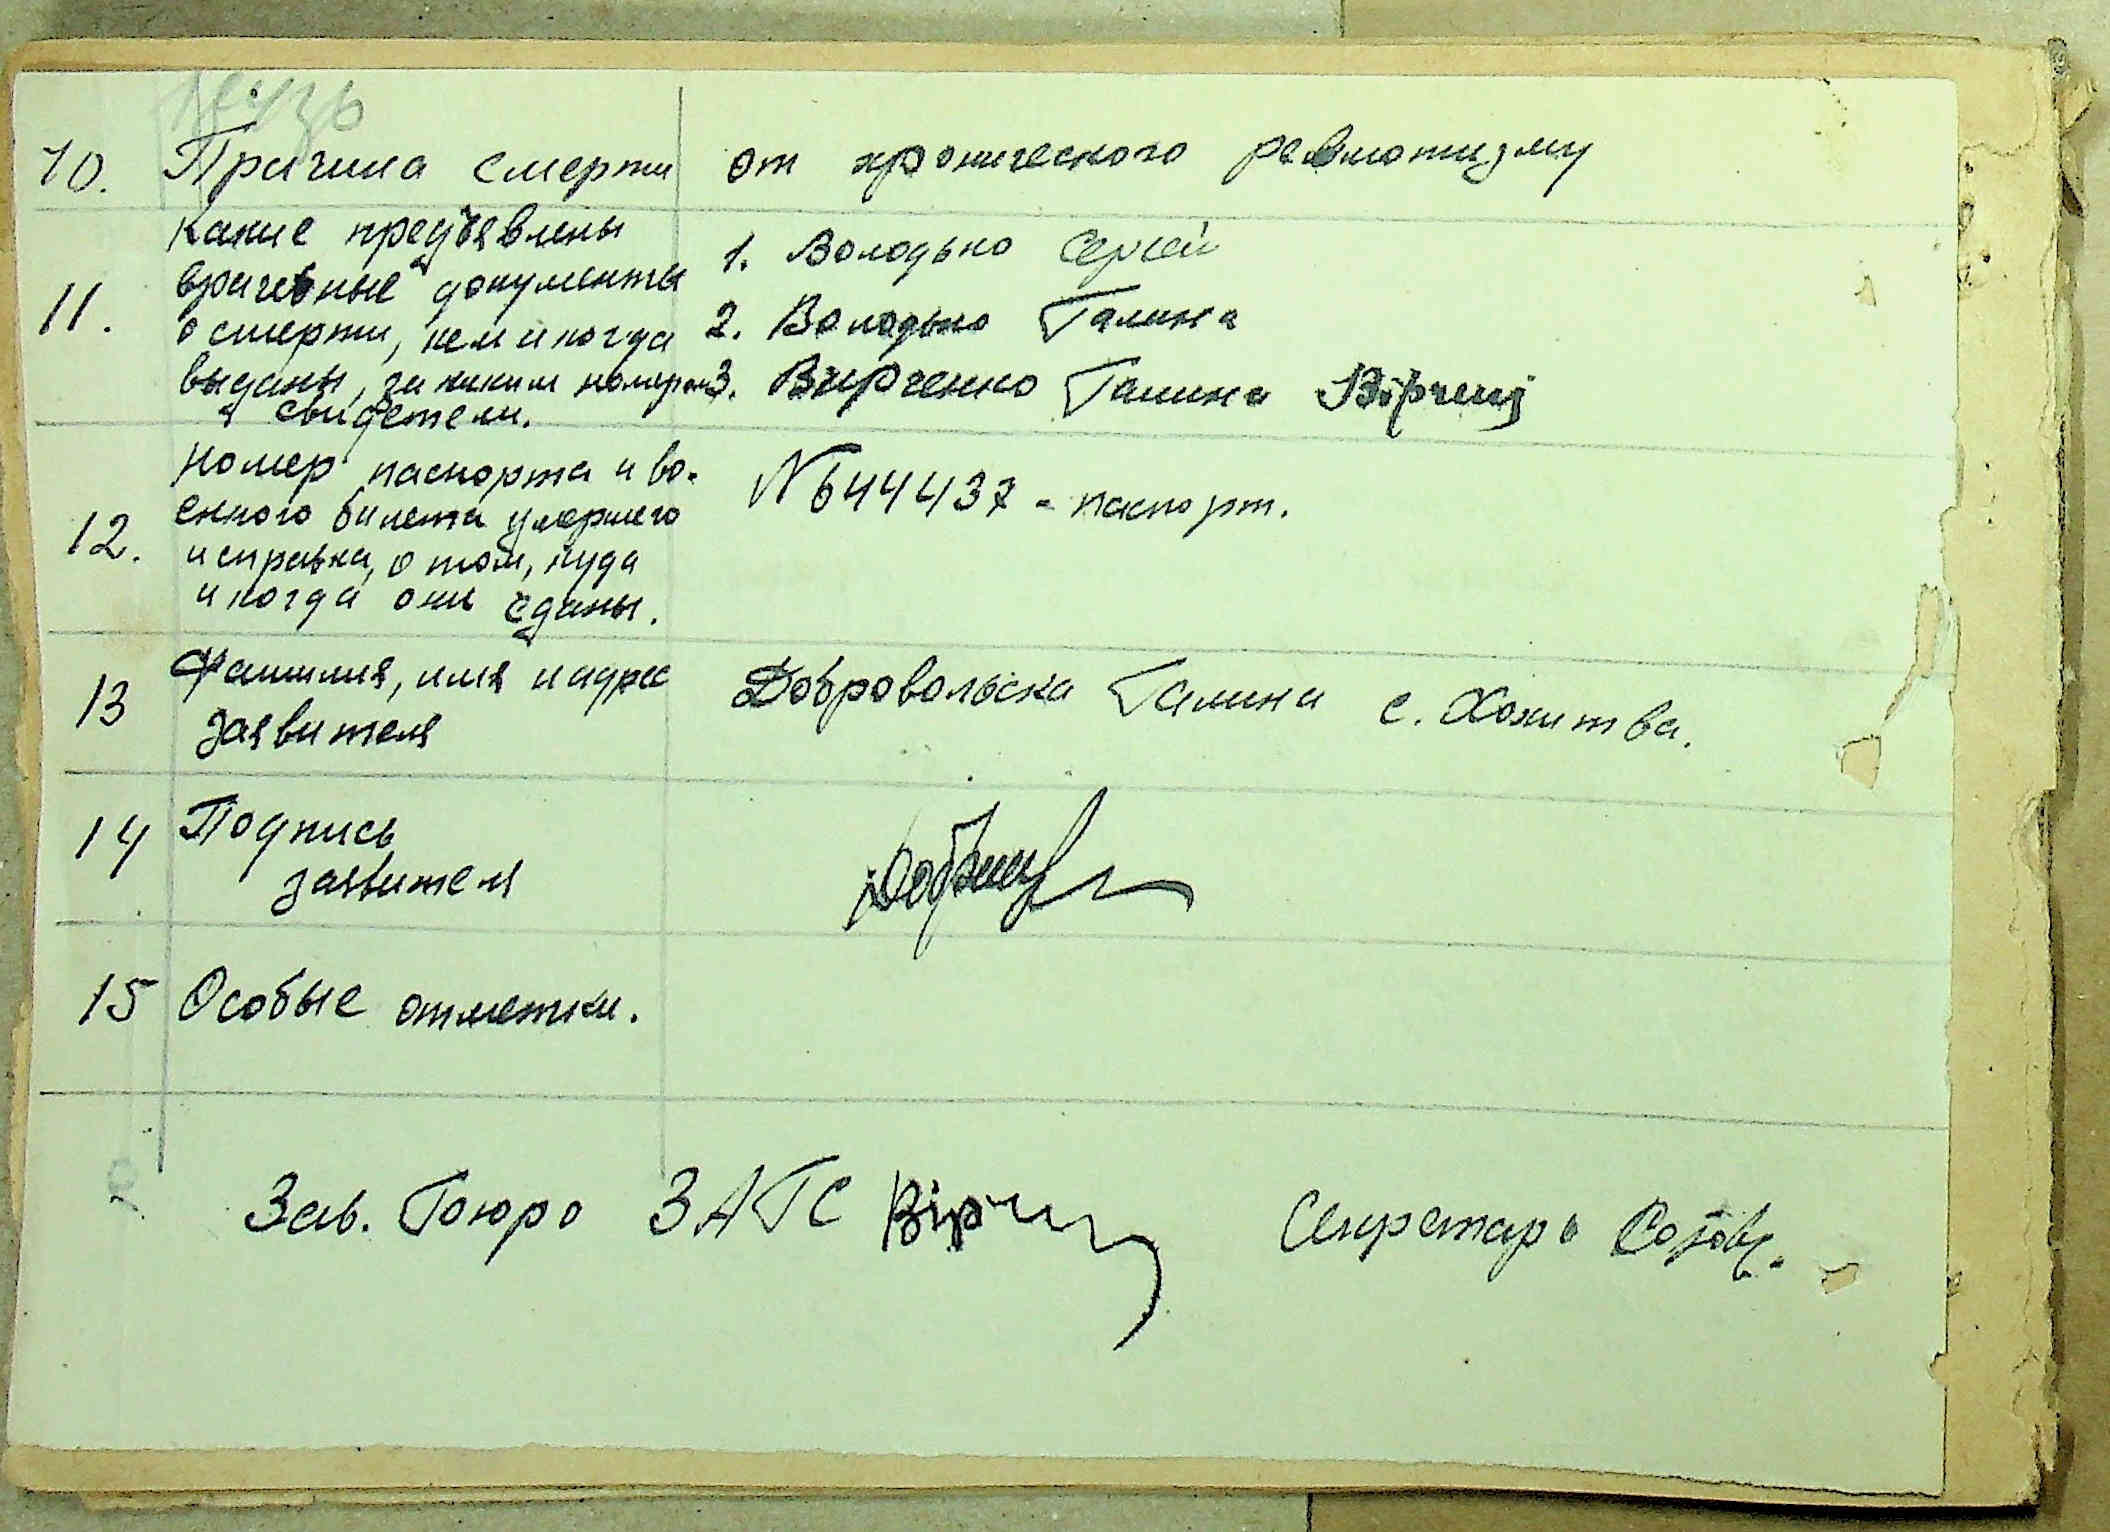 10. Причина смерти от хронического ревмотизму
11. Какие предъявлены
врачебные документы
о смерти, кем и когда
выданы, за каким номером
и свидетели.
1. Володько Сергей
2. Володько Галина
3. Вирченко Галина
12. Номер паспорта и во-
енного билета умершего
и справка, о том, куда
и когда они сданы.
N 644437 - паспорт.
13 Фамилия, имя и адрес
заявителя
Добровольска Галина с. Хокитва.
14 Подпись
заявителя
15 Особые отметки.
Зав. Бюро ЗАГС Секретарь